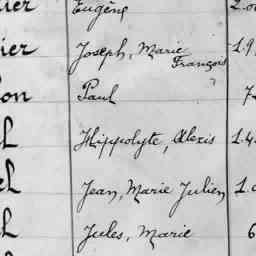 ier Eugène 2.0
ier Joseph, Marie 1.9
François
on Paul 7
l Hippolyte, Alexis 1.4
el Jean, Marie Julien 1.
l Jules, Marie 6